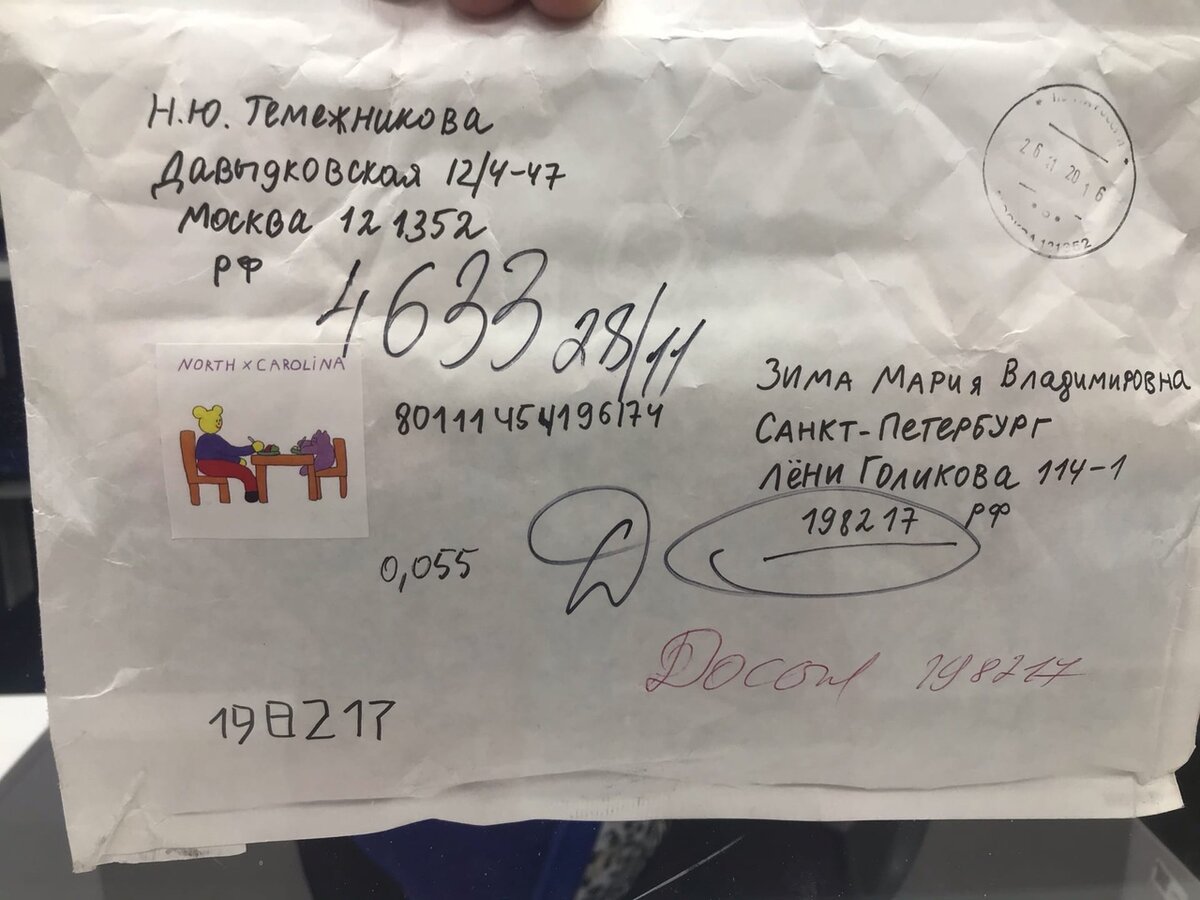 Н.Ю. Темежникова
Давыдковская 12/4-47
Москва 121352
РФ
26 11 2016
121352
4633 28/11
NORTH x CAROLINA
80111454196174
Зима Мария Владимировна
Санкт-Петербург
Лёни Голикова 114-1
198217 РФ
0,055
198217
198217